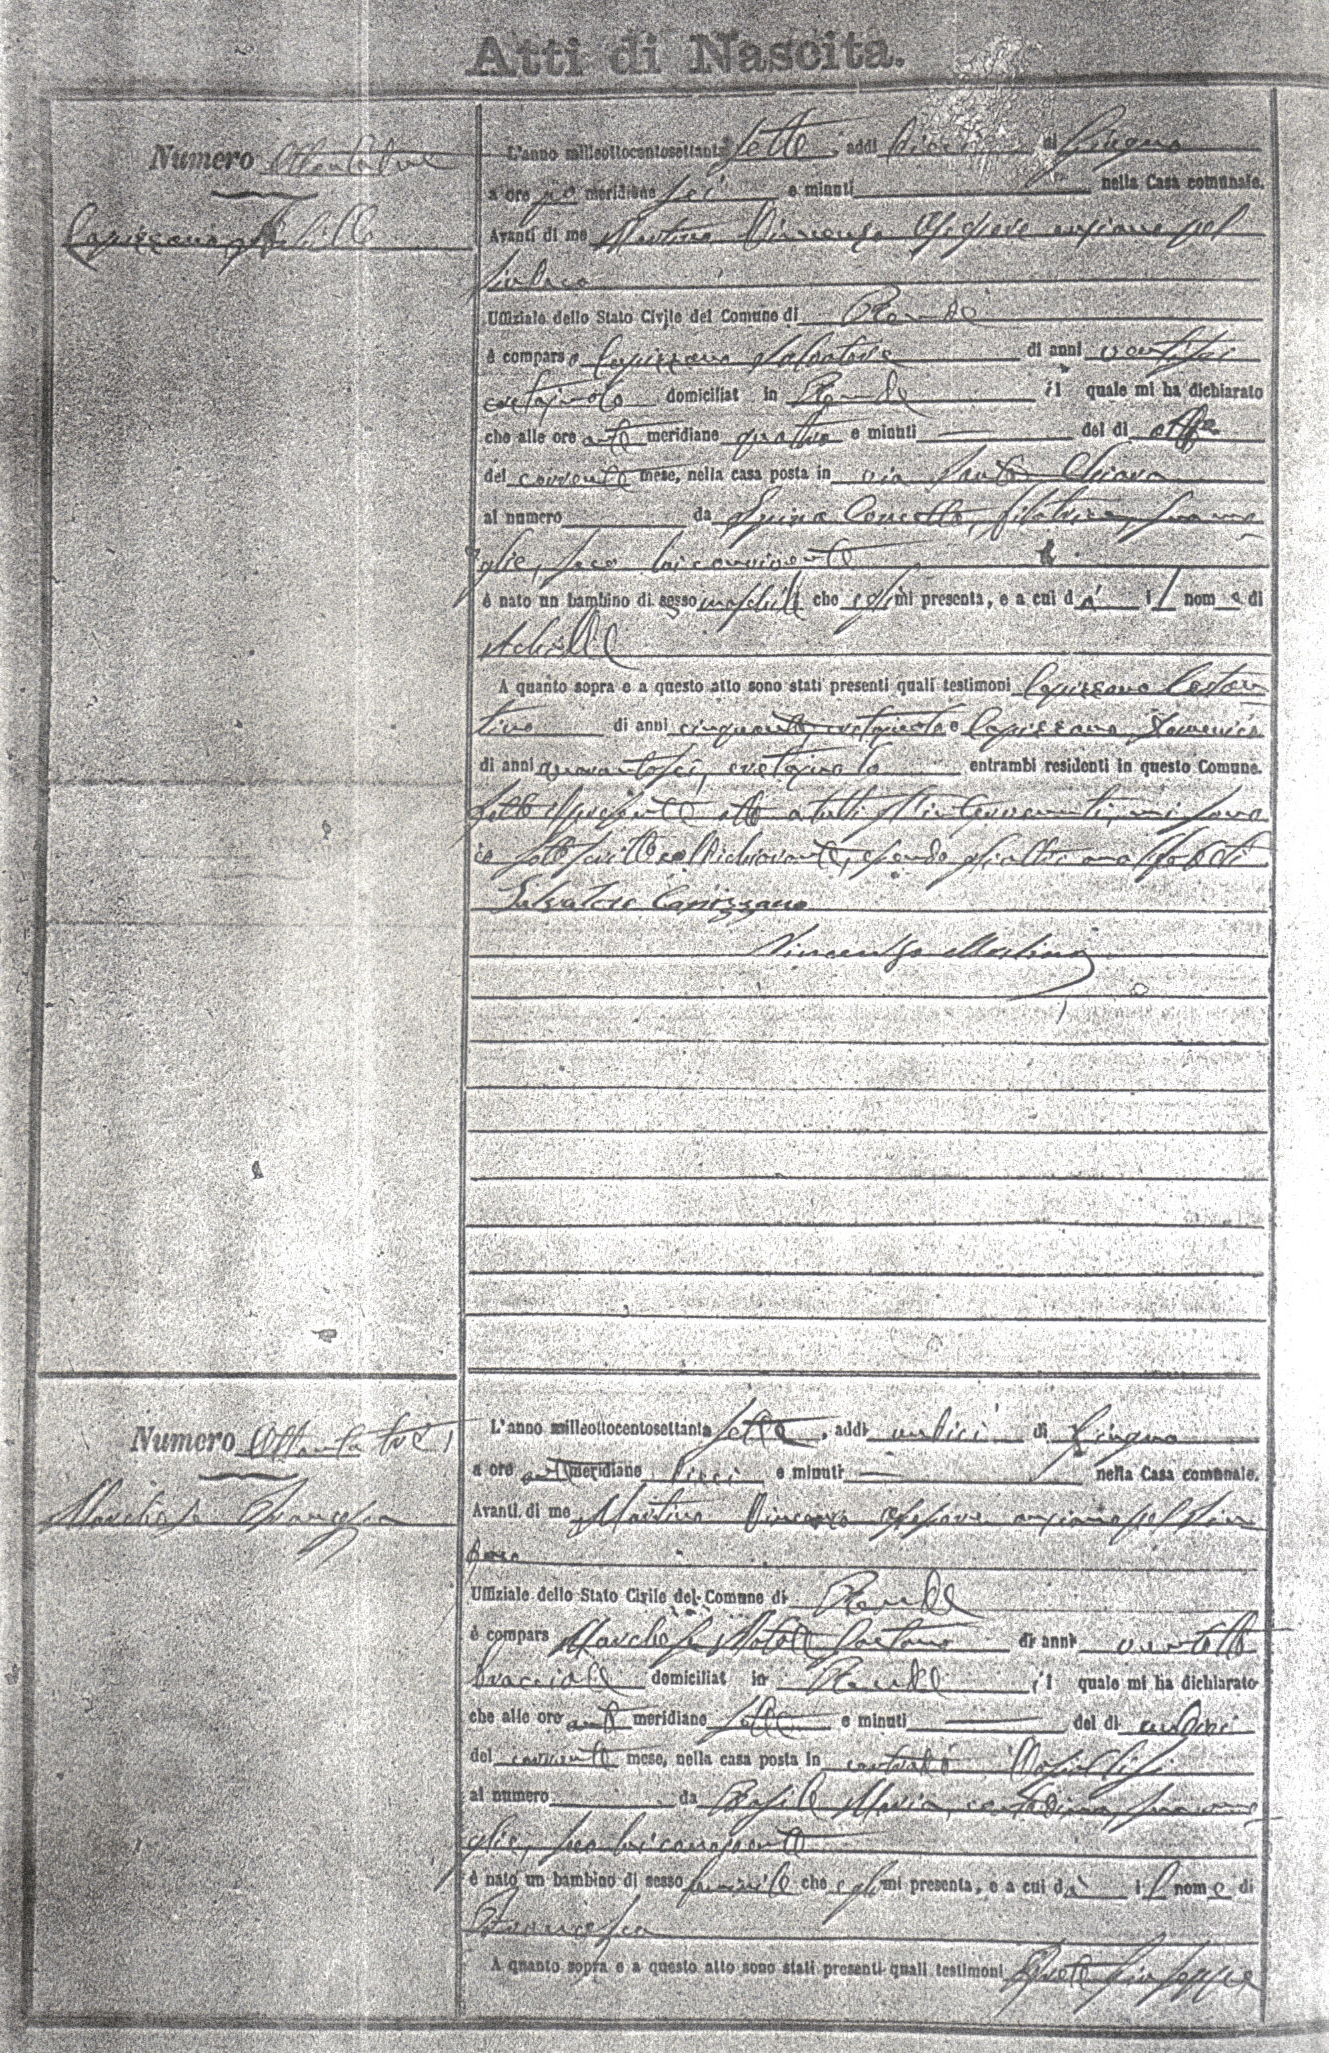 Atti di Nascita.
Numero Ottantadue
Capizzano Achille
L'anno milleottocentosettanta sette, addì dieci di Giugno
a ore po meridiane sei e minuti nella Casa comunale.
Avanti di me Martino Vincenzo Assessore anziano pel
Sindaco
Uffiziale dello Stato Civile del Comune di Rende
è comparso Capizzano Salvatore di anni ventisei
domiciliat in Rende il quale mi ha dichiarato
che alle ore ante meridiane quattro e minuti del dì otto
del corrente mese, nella casa posta in via Santa Chiara
al numero da Spina Concetta, filatrice, sua mo
glie, seco lui convivente
è nato un bambino di sesso maschile che egli mi presenta, e a cui dà il nome di
Achille
A quanto sopra e a questo atto sono stati presenti quali testimoni Capizzano Costan
tino di anni cinquanta e Capizzano Domenico
di anni quarantasei, entrambi residenti in questo Comune.
Letto il presente atto a tutti gl'intervenuti, mi sono
sottoscritto col dichiarante, essendo gli altri analfabeti
Salvatore Capizzano
Vincenzo Martino
Numero Ottantatre
Marchese Francesca
L'anno milleottocentosettanta sette, addì undici di Giugno
a ore ant meridiane dieci e minuti nella Casa comunale.
Avanti di me Martino Vincenzo Assessore anziano pel Sin
daco
Uffiziale dello Stato Civile del Comune di Rende
è compars Marchese Gaetano di anni ventotto
bracciale domiciliat in Rende il quale mi ha dichiarato
che alle ore ant meridiane sette e minuti del dì undici
del corrente mese, nella casa posta in contrada
al numero da Maria, contadina, sua mo
glie, seco lui convivente
è nato un bambino di sesso feminile che egli mi presenta, e a cui dà il nome di
Francesca
A quanto sopra e a questo atto sono stati presenti quali testimoni Giuseppe